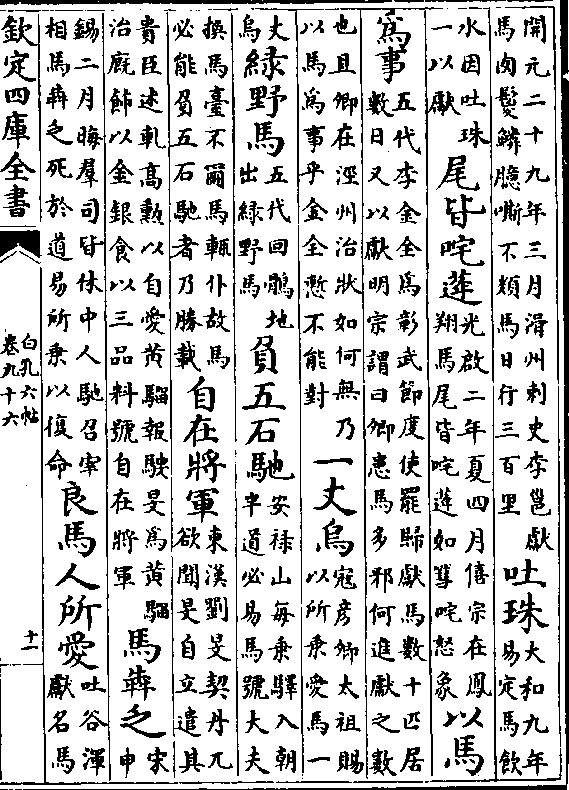 開元二十九年三月滑州刺史李邕獻
馬肉鬉鱗臆嘶不類馬日行三百里
吐珠
大和九年
易定馬飲
水因吐珠
一以獻
尾皆咤蓬
光啟二年夏四月僖宗在鳳
翔馬尾皆咤蓬如篲咤怒象
以馬
為事
五代李金全為彰武節度使罷歸獻馬數十匹居
數日又以獻明宗謂曰卿患馬多邪何進獻之數
也且卿在涇州治狀如何無乃
以馬為事乎金全慙不能對
一丈烏
寇彦卿太祖賜
以所乗愛馬一
丈
烏
緑野馬
五代回鶻地
出緑野馬
負五石馳
安禄山每乗驛入朝
半道必易馬號大夫
換馬臺不爾馬輒仆故馬
必能負五石馳者乃勝載
自在將軍
東漢劉旻契丹兀
欲聞旻自立遣其
貴臣述軋高勲以自愛黄騮報駛旻為黄騮
治廐飾以金銀食以三品料號自在將軍
馬犇之
宋
申
錫二月晦羣司皆休中人馳召宰
相馬犇之死於道易所乗以復命
良馬人所愛
吐谷渾
獻名馬
欽定四庫全書
白孔六帖
卷九十六
十一